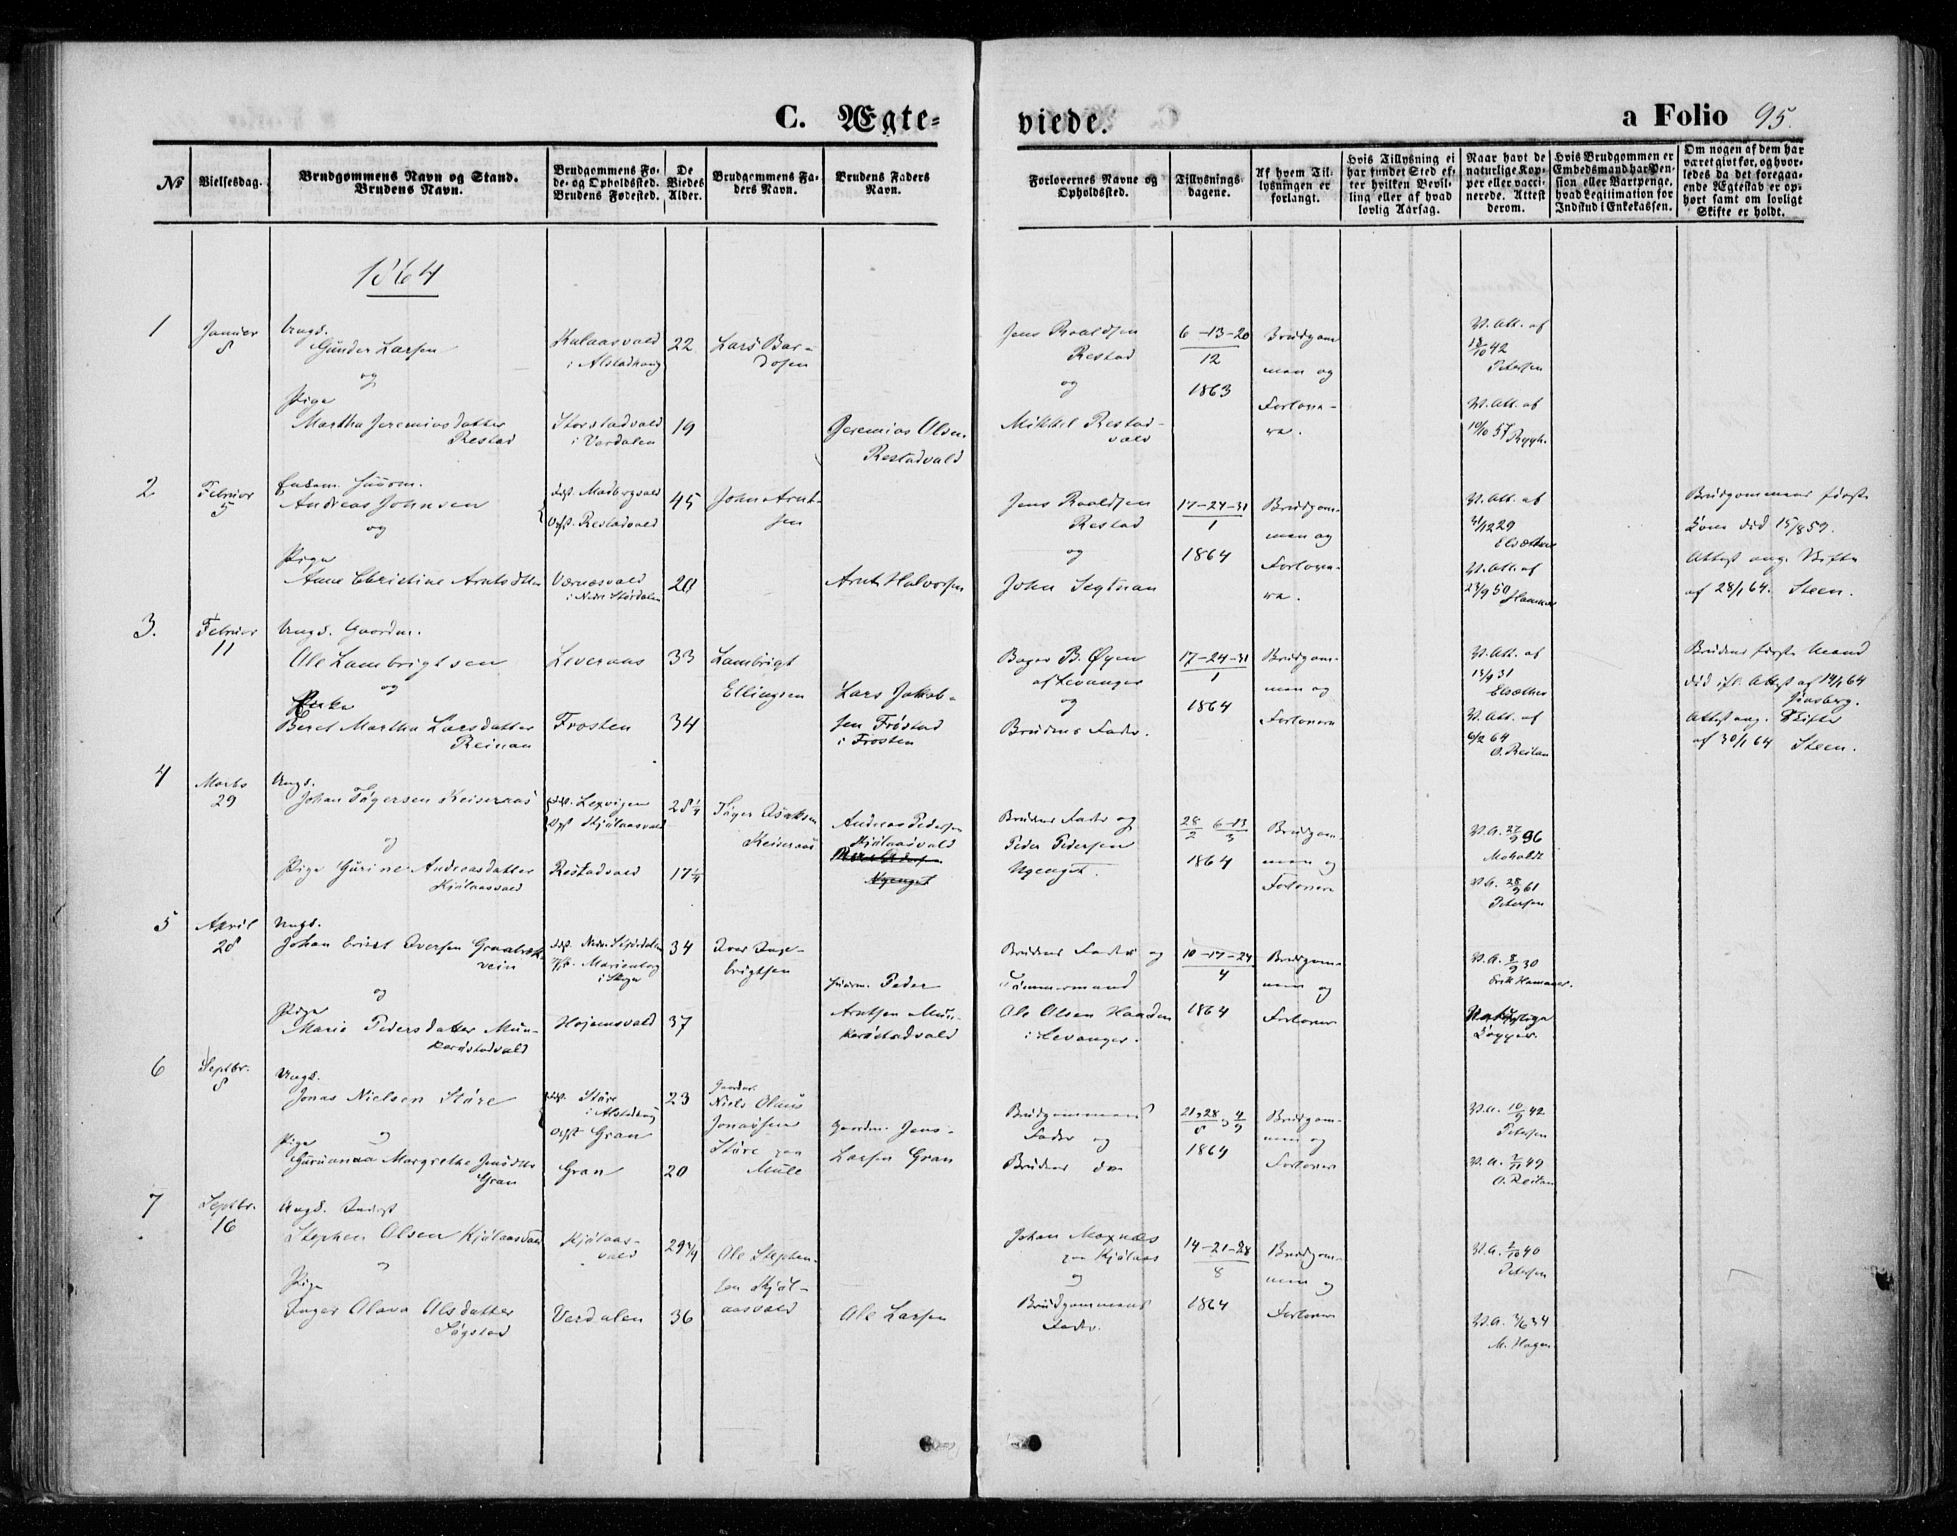 C. Ægte=
viede.
a Folio 95.
№
Vielsesdag.
Brudgommens Navn og Stand.
Brudens Navn.
Brudgommens Fø-
de- og Opholdssted.
Brudens Fødested.
De
Viedes
Alder.
Brudgommens Fa-
ders Navn.
Brudens Faders
Navn.
Forlovernes Navne og
Opholdssted.
Tillysnings-
dagene.
Af hvem Til-
lysningen er
forlangt.
Hvis Tillysning ei
har fundet Sted ef-
ter hvilken Bevil-
ling eller af hvad
lovlig Aarsag.
Naar havt de
naturlige Kop-
per eller vacci-
nerede. Attest
derom.
Hvis Brudgommen er
Embedsmand har Pen-
sion eller Vartpenge,
hvad Legitimation for
Indskud i Enkekassen.
Om nogen af dem har
været gift før, og hvor-
ledes da det foregaa-
ende Ægteskab er op-
hørt samt om lovligt
Skifte er holdt.
1864
1
Januar
8
Ungk.
Gunder Larsen
og
Pige
Martha Jeremiasdatter
Restad
i Alstadhaug
Storstadvald
i Værdalen
22
19
Lars Bar-
dosen
Jeremias Olsen
Restadvald
Jens Roaldsen
Restad
og
Mikkel Restad-
vald
6-13-20
12
1863
Brudgom-
men og
Forlove-
re.
V. Att. af
18/10 42
Petersen
V. Att. af
10/10 57 Rygh.
2
Februar
5
Enkem. Huusm.
Andreas Johnsen
og
Pige
Anne Christine Arntsdtter
Fst. Madbergvald
Opst. Restadvald
Værnesvald
i Nedre Størdalen
45
28
John Arnt-
sen
Arnt Halvorsen
Jens Roaldsen
Restad
og
John Segtnan
17-24-31
1
1864
Brudgom-
men og
Forlove-
re.
V. Att. af
31/12 29
Elsæther
V. Att. af
23/9 50 Hammer
Brudgommens første
Kone død 15/8 59.
Attest ang. Skifte
af 28/1 64. Steen.
3.
Februar
11
Ungk. Gaardm.
Ole Lambrigtsen
og
Enke
Beret Martha Larsdatter
Reinan
Leveraas
Frosten
33
34
Lambrigt
Ellingsen
Lars Jakob-
sen Frøstad
i Frosten
Bager B. Øyen
af Levanger
og
Brudens Fader.
17-24-31
1
1864
Brudgom-
men og
Forlovere
V. Att. af
13/9 31
Elsæther
V. Att. af
6/2 64
O. Reitan
Brudens første Mand
død ifl. Attest af 14/1 64
Attest ang. Skifte
af 30/1 64 Steen.
4
Marts
29
Ungk.
Johan Tøgersen Keiseraas
og
Pige Gurine Andreasdatter
Kjølaasvald
Fst. Lexvigen
Opst Kjølaasvald
Restadvald
28 1/4
17 1/4
Tøger Isaksen
Keiseraas
Andreas Pedersen
Kjølaasvald
Nyenget
Brudens Fader og
Peder Pedersen
Nyenget.
28/2 6-13/3
1864
Brudgom-
men og
Forlovere
V. A. 27/9 36
Moholdt
V. A. 28/9 61
Petersen
5
April
28
Ungk.
Johan Iversen
og
Pige
Marie Pedersdatter Mun-
kerøstadvald
Fst. Nedre Størdalen
Opst. Marienborg
i Skogn
Højemsvald
34
37
Iver Inge-
brigtsen
Huusm. Peder
Arntsen Mun-
kerøstadvald
Brudens Fader og
Tømmermand
Ole Olsen Haaden
i Levanger.
10-17-24
4
1864
Brudgom-
men og
Forlover
V. A. 8/9 30
Erik Hammer.
Naturlige
Kopper.
6
Septbr.
8
Ungk.
Jonas Nielsen Støre
og
Pige
Guruanna Margrethe Jensdtter
Gran
Fst. Støre
i Alstadhaug
Opst Gran
Gran
23
20
Gaardm.
Niels Olaus
Jonassen
Støre paa
Mule
Gaardm. Jens
Larsen Gran
Brudgommens
Fader og
Brudens do
21, 28/8, 4/9
1864
Brudgom-
men og
Forlover
V. A. 10/9 42
Petersen
V. A. 2/11 49
O. Reitan
7
Septbr.
16
Ungk. Inderst
Stephen Olsen Kjølaasvald
og
Pige
Inger Olava Olsdatter
Søgstad
Kjølaas-
vald
Verdalen
29 3/4
36
Ole Stephen-
sen Kjøl-
aasvald
Ole Larsen
Johan Moxnæs
paa Kjølaas
og
Brudgommens
Fader.
14-21-28
8
1864
Brudgom-
men og
Forlover
V. A. 2/10 40
Petersen
V. A. 7/6 34
M. Hagen